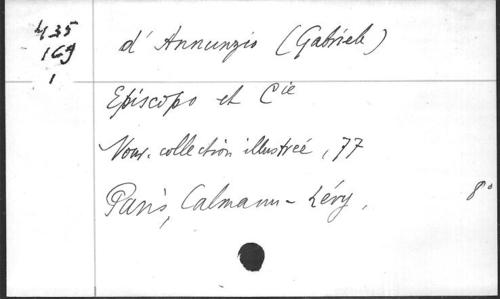 435
169
1
d'Annunzio (Gabriele)
Episcopo et Cie
Nouv. collection illustrée, 77
Paris, Calmann-Lévy.
8°